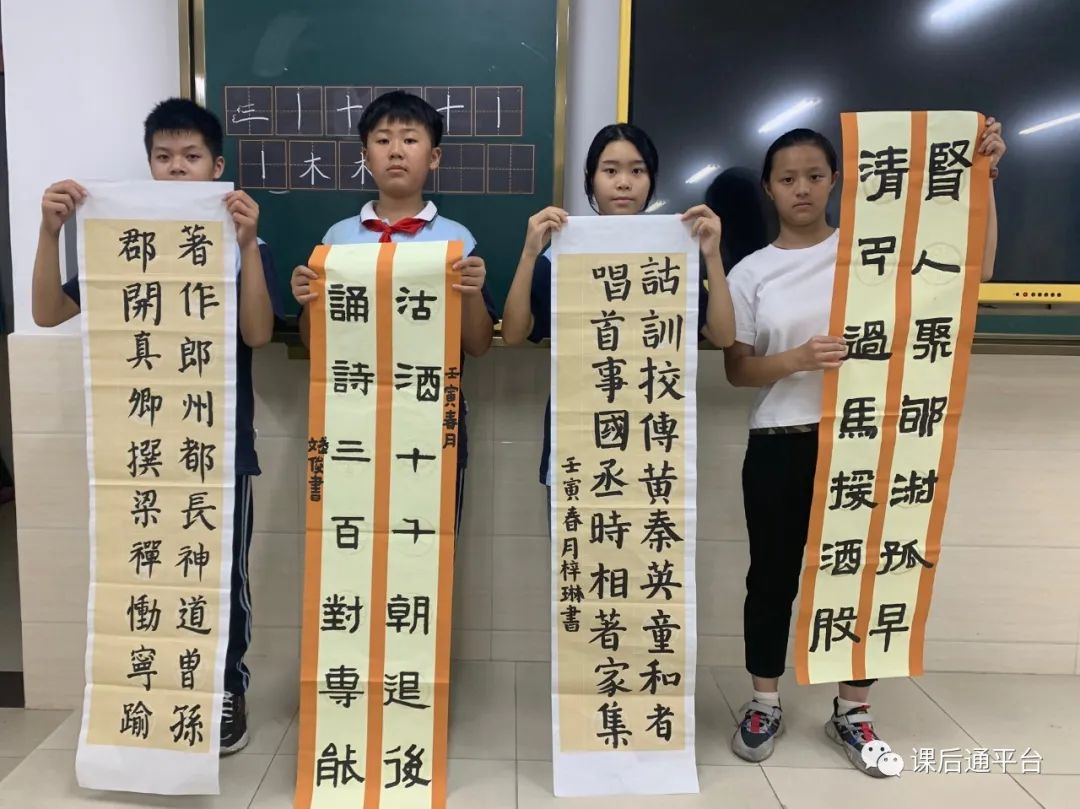 木木
著作郎州都長神道曾孫
郡開真卿撰梁禪慟寧踰
沽酒十千朝退後
誦詩三百對專能
壬寅春月
俊書
詁訓挍傳黄秦英童和者
唱首事國丞時相著家集
壬寅春月梓琳書
賢人聚孤早
清過馬援酒股
课后通平台